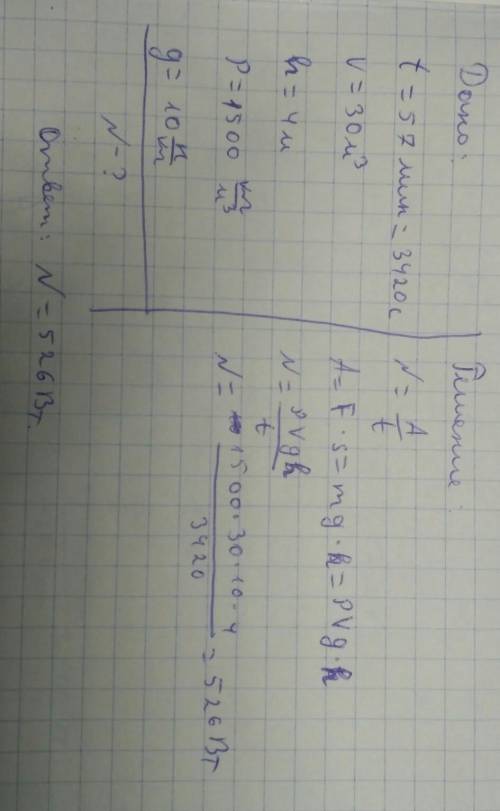 Дано:
t = 57 мин = 3420 с
V = 30 м³
h = 4 м
ρ = 1500 кг/м³
g = 10 Н/кг
N - ?
Решение:
N = A/t
A = F · s = mg · h = ρVg · h
N = ρVgh/t
N = 1500·30·10·4/3420 = 526 Вт
Ответ: N = 526 Вт.